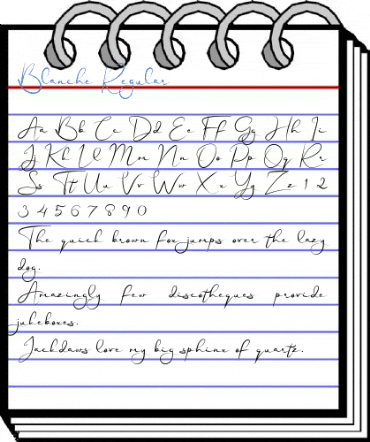 Blanche Regular
Aa Bb Cc Dd Ee Ff Gg Hh Ii
Jj Kk Ll Mm Nn Oo Pp Qq Rr
Ss Tt Uu Vv Ww Xx Yy Zz 1 2
3 4 5 6 7 8 9 0
The quick brown fox jumps over the lazy
dog.
Amazingly few discotheques provide
jukeboxes.
Jackdaws love my big sphinx of quartz.